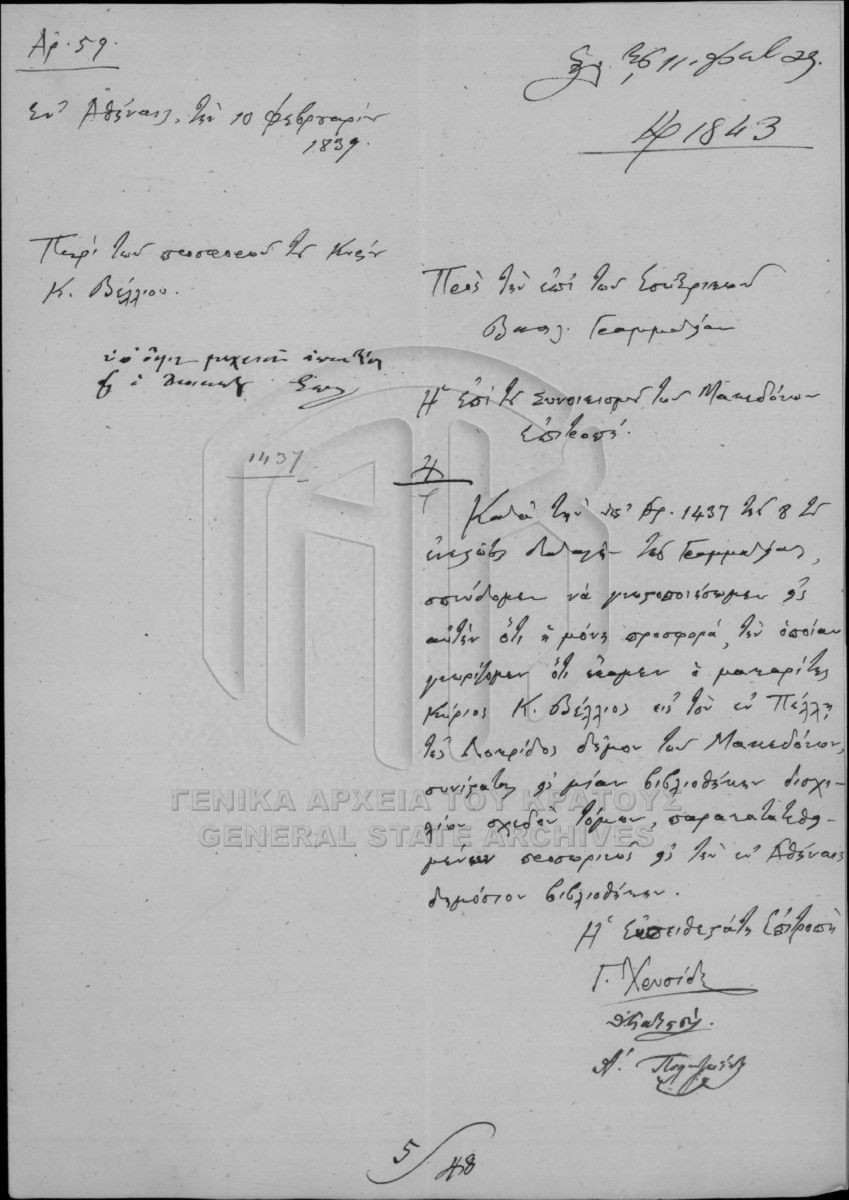 Αρ. 59.
Εν Αθήναις, την 10 Φεβρουαρίου
1839.
11 Φεβ
1843
Περί των προσφορών του Κυρίου
Κ. Βέλλιου.
1437
Προς την επί των Εσωτερικών
Βασιλ. Γραμματείαν
Η επί του Συνοικισμού των Μακεδόνων
Επιτροπή.
Κατά την υπ' Αρ. 1437 της 8 του
διαταγήν της Γραμματείας,
σπεύδομεν να γνωστοποιήσωμεν εις
αυτήν ότι η μόνη προσφορά, την οποίαν
γνωρίζομεν ότι έκαμεν ο μακαρίτης
Κύριος Κ. Βέλλιος εις τον εν Πέλλη
της Λοκρίδος δήμον των Μακεδόνων,
συνίσταται εις μίαν βιβλιοθήκην δισχι-
λίων σχεδόν τόμων, παρακατατεθει-
μένων προσωρινώς εις την εν Αθήναις
δημόσιον βιβλιοθήκην.
Η Ευπειθεστάτη Επιτροπή
Γ. Χρυσίδης
5/48
ΓΕΝΙΚΑ ΑΡΧΕΙΑ ΤΟΥ ΚΡΑΤΟΥΣ
GENERAL STATE ARCHIVES